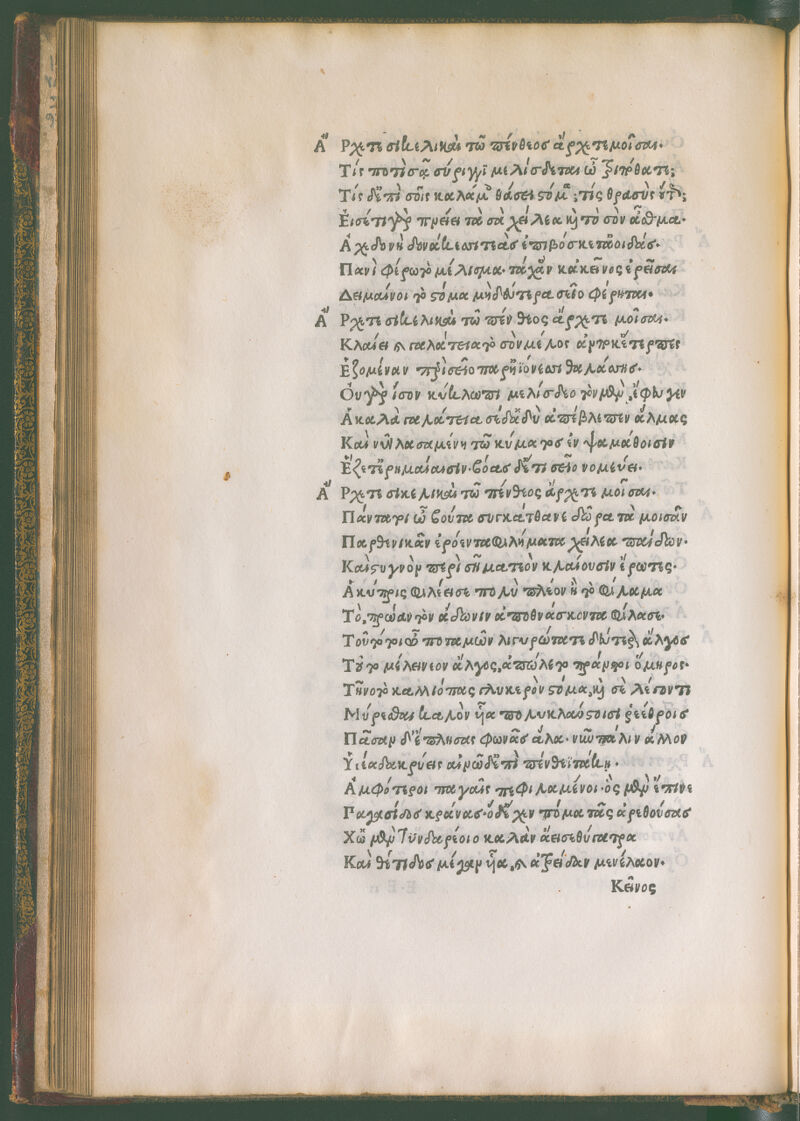 Ἄρχετε σικελικαὶ τῶ πένθεος ἄρχετε μοῖσαι·
Τίς ποτὶ σᾷ σύριγγι μελίσδεται ὦ τριπόθατε;
Τίς δ' ἐπὶ σοῖς καλάμοις θάσει στόμα; τίς θρασὺς οὕτως;
Εἰσέτι γὰρ πνείει τὰ σὰ χείλεα καὶ τὸ σὸν ἆσθμα·
δονάκεσσι τεὰς ἐπιβόσκετ' ἀοιδάς·
Πανὶ φέρω τὸ μέλισμα· τάχ' ἂν κἀκεῖνος ἐρεῖσαι
Δειμαίνοι τὸ στόμα μὴ δεύτερα σεῖο φέρηται·
Ἄρχετε σικελικαὶ τῶ πένθεος ἄρχετε μοῖσαι·
Κλαίει καὶ γαλάτεια τὸ σὸν μέλος ἅν ποκ' ἔτερπες
Ἑζομέναν παρὰ σεῖο παρ' ἠϊόνεσσι θαλάσσης·
Οὐ γὰρ ἴσον κύκλωπι μελίσδεο τὸν μὲν, ἔφευγεν
Ἁ καλὰ γαλάτεια σὲ δ' ἁδὺ ἀπέβλεπεν ἅλμας
Καὶ νῦν λασαμένη τῶ κύματος ἐν ψαμάθοισιν
Ἕζετ' ἐρημαίαισιν· βόας δ' ἔτι σεῖο νομεύει·
Ἄρχετε σικελικαὶ τῶ πένθεος ἄρχετε μοῖσαι·
Πάντα τοι ὦ βοῦτα συγκάτθανε δῶρα τὰ μοισᾶν
Παρθενικᾶν ἐρόεντα φιλήματα χείλεα παίδων·
Καὶ στυγνὸν περὶ σῆμα τεὸν κλαίουσιν ἔρωτες·
Ἁ κύπρις φιλέει σε πολὺ πλέον ἢ τὸ φίλαμα
Τὸ, πρώαν τὸν ἄδωνιν ἀποθνάσκοντα φίλασε·
Τοῦτό τοι ὦ ποταμῶν λιγυρώτατε δεύτερον ἄλγος
Τοῦτο μέλει νέον ἄλγος, ἀπώλετο πράν τοι ὅμηρος·
Τῆνο τὸ καλλιόπας γλυκερὸν στόμα, καὶ σὲ λέγοντι
Μύρεσθαι καλὸν υἷα πολυκλαύστοισι ῥεέθροις
Πᾶσαν δ' ἔπλησας φωνᾶς ἅλα· νῦν πάλιν ἄλλον
Υἱέα δακρύεις αἰνῶ δ' ἐπὶ πένθεϊ τάκῃ·
Ἀμφότεροι παγαῖς πεφιλαμένοι· ὃς μὲν ἔπινε
Παγασίδος κράνας· ὁ δ' ἔχεν πόμα τᾶς ἀρεθούσας
Χὢ μὲν Τυνδαρέοιο καλὰν ἄεισε θύγατρα
Καὶ θέτιδος μέγαν υἷα, καὶ ἀτρείδαν μενέλαον·
Κεῖνος